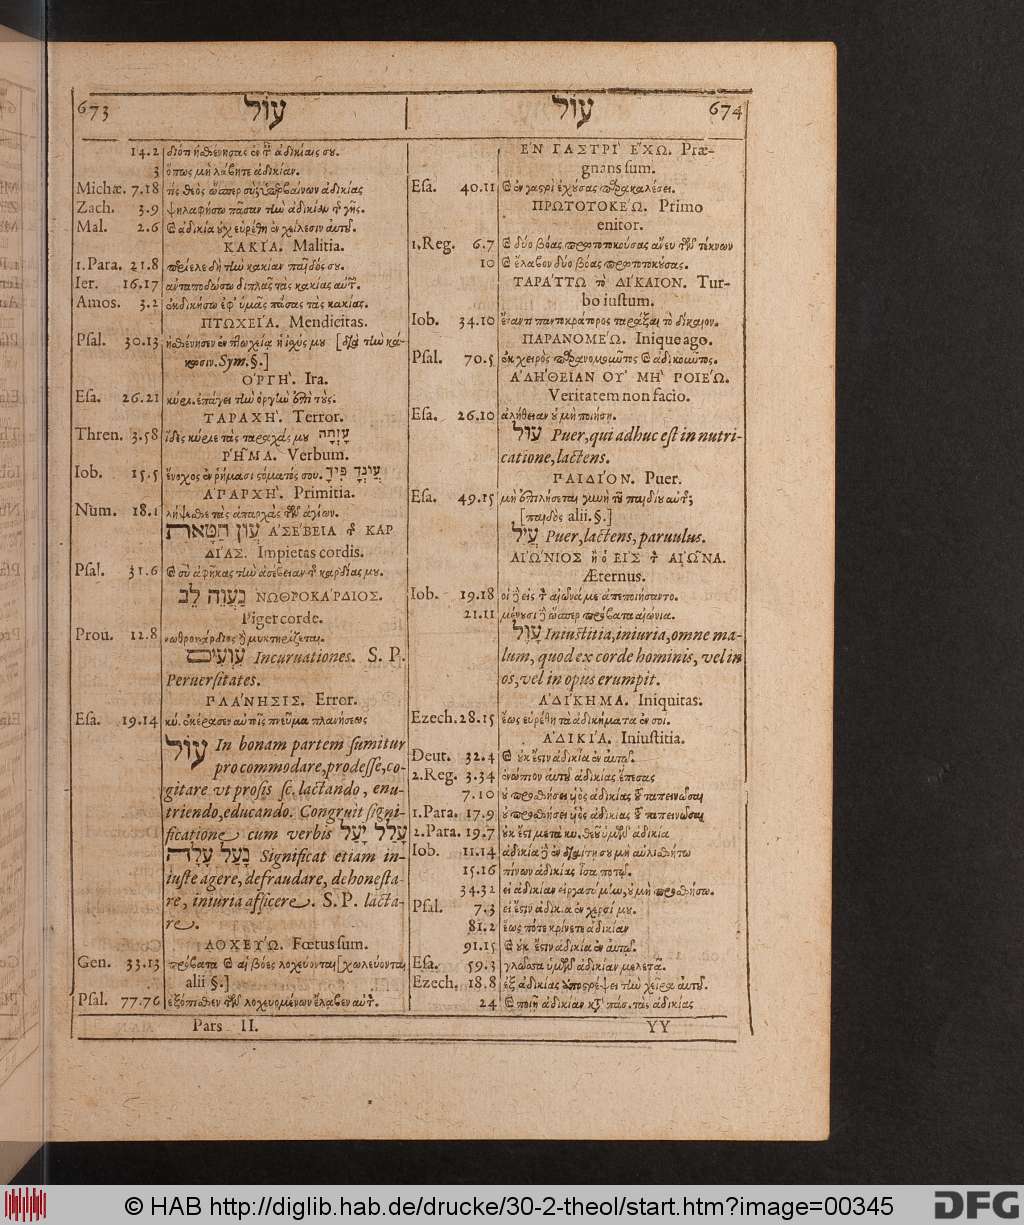 673 עול
14.2 διότι ἠσθένησας ἐν τ ἀδικίαις σου.
3 ὅπως μὴ λάβητε ἀδικίαν.
Michæ. 7.18 τίς θεὸς ὥσπερ σὺ; ὑπερβαίνων ἀδικίας
Zach. 3.9 ψηλαφήσω πᾶσαν τὴν ἀδικίαν τ γῆς.
Mal. 2.6 καὶ ἀδικία οὐχ εὑρέθη ἐν χείλεσιν αὐτοῦ.
ΚΑΚΙ'Α. Malitia.
1.Para. 21.8 περίελε δὴ τὴν κακίαν παιδός σου.
Ier. 16.17 ἀνταποδώσω διπλᾶς τὰς κακίας αὐτ.
Amos. 3.2 ἐκδικήσω ἐφ' ὑμᾶς πάσας τὰς κακίας.
ΠΤΩΧΕΙ'Α. Mendicitas.
Psal. 30.13 ἠσθένησεν ἐν πτωχείᾳ ἡ ἰσχύς μου [διὰ τὴν κά-
κωσιν. Sym. §.]
Ο'ΡΓΗ'. Ira.
Esa. 26.21 κύρι. ἐπάγει τὴν ὀργὴν ἐπὶ τούς.
ΤΑΡΑΧΗ'. Terror.
Thren. 3.58 ἴδες κύριε τὰς ταραχάς μου עָוָתָה
ΡΗ͂ΜΑ. Verbum.
Iob. 15.5 ἔνοχος ἐν ῥήμασι στόματός σου. עֲוֹנְךָ פִיךָ
Α'ΠΑΡΧΗ'. Primitia.
Num. 18.1 λήψεσθε τὰς ἀπαρχὰς τῶν ἁγίων.
עֲוֹן חַטָּאת Α'ΣΕ'ΒΕΙΑ τ ΚΑΡ
ΔΙ'ΑΣ. Impietas cordis.
Psal. 31.6 καὶ σὺ ἀφῆκας τὴν ἀσέβειαν τ καρδίας μου.
נַעֲוֵה לֵב ΝΩΘΡΟΚΑ'ΡΔΙΟΣ.
Piger corde.
Prou. 12.8 νωθροκάρδιος μυκτηρίζεται.
עִוְעִים Incuruationes. S. P.
Peruersitates.
ΠΛΑ'ΝΗΣΙΣ. Error.
Esa. 19.14 κύ. ἐκέρασεν αὐτοῖς πνεῦμα πλανήσεως
עוֹל In bonam partem sumitur
pro commodare, prodesse, co-
gitare vt prosis sc. lactando, enu-
triendo, educando. Congruit signi-
ficatione cum verbis עָלַל יָעַל
נָעַל עָלָה Significat etiam in-
iuste agere, defraudare, dehonesta-
re, iniuria afficere. S. P. lacta-
re.
ΛΟΧΕΥ'Ω. Fœtus sum.
Gen. 33.13 πρόβατα καὶ αἱ βόες λοχεύονται [χωλεύονται
alii §.]
Psal. 77.76 ἐξόπισθεν τῶν λοχευομένων ἔλαβεν αὐτ.
Pars II.
עול 674
Ε'Ν ΓΑΣΤΡΙ' Ε'ΧΩ. Præ-
gnans sum.
Esa. 40.11 καὶ ἐν γαστρὶ ἐχούσας παρακαλέσει.
ΠΡΩΤΟΤΟΚΕ'Ω. Primo
enitor.
1.Reg. 6.7 καὶ δύο βόας πρωτοτοκούσας ἄνευ τῶν τέκνων
10 καὶ ἔλαβον δύο βόας πρωτοτοκούσας.
ΤΑΡΑ'ΤΤΩ τὸ ΔΙ'ΚΑΙΟΝ. Tur-
bo iustum.
Iob. 34.10 ἔναντι παντοκράτορος ταράξαι τὸ δίκαιον.
ΠΑΡΑΝΟΜΕ'Ω. Inique ago.
Psal. 70.5 ἐκ χειρὸς παρανομοῦντος καὶ ἀδικοῦντος.
Α'ΛΗ'ΘΕΙΑΝ ΟΥ' ΜΗ' ΠΟΙΕ'Ω.
Veritatem non facio.
Esa. 26.10 ἀλήθειαν οὐ μὴ ποιήσῃ.
עוּל Puer, qui adhuc est in nutri-
catione, lactens.
ΠΑΙΔΙ'ΟΝ. Puer.
Esa. 49.15 μὴ ἐπιλήσεται γυνὴ τοῦ παιδίου αὐτ;
[παιδὸς alii. §.]
עֲוִיל Puer, lactens, paruulus.
ΑΙ'Ω'ΝΙΟΣ ἢ ὁ ΕΙΣ τ ΑΙ'Ω͂ΝΑ.
Æternus.
Iob. 19.18 οἱ εἰς τ αἰῶνά με ἀπεποιήσαντο.
21.11 μένουσι ὥσπερ πρόβατα αἰώνια.
עָוֶל Iniustitia, iniuria, omne ma-
lum, quod ex corde hominis, vel in
os, vel in opus erumpit.
Α'ΔΙ'ΚΗΜΑ. Iniquitas.
Ezech. 28.15 ἕως εὑρέθη τὰ ἀδικήματα ἐν σοί.
Α'ΔΙΚΙ'Α. Iniustitia.
Deut. 32.4 καὶ οὐκ ἔστιν ἀδικία ἐν αὐτῷ.
2.Reg. 3.34 ἐνώπιον αὐτοῦ ἀδικίας ἔπεσας
7.10 οὐ προσθήσει υἱὸς ἀδικίας τοῦ ταπεινῶσαι
1.Para. 17.9 οὐ προσθήσει υἱὸς ἀδικίας τοῦ ταπεινῶσαι
2.Para. 19.7 οὐκ ἔστι μετὰ κυ. θεοῦ ὑμῶν ἀδικία
Iob. 11.14 ἀδικία ἐν διαίτῃ σου μὴ αὐλισθήτω
15.16 πίνων ἀδικίας ἴσα ποτῷ.
34.32 εἰ ἀδικίαν εἰργασάμην, οὐ μὴ προσθήσω.
Psal. 7.3 εἰ ἔστιν ἀδικία ἐν χερσί μου.
81.2 ἕως πότε κρίνετε ἀδικίαν
91.15 καὶ οὐκ ἔστιν ἀδικία ἐν αὐτῷ.
Esa. 59.3 γλῶσσα ὑμῶν ἀδικίαν μελετᾷ.
Ezech. 18.8 ἐξ ἀδικίας ἀποστρέψει τὴν χεῖρα αὐτοῦ.
24 καὶ ποιῇ ἀδικίαν κατὰ πάσ. τὰς ἀδικίας
YY
© HAB http://diglib.hab.de/drucke/30-2-theol/start.htm?image=00345
DFG